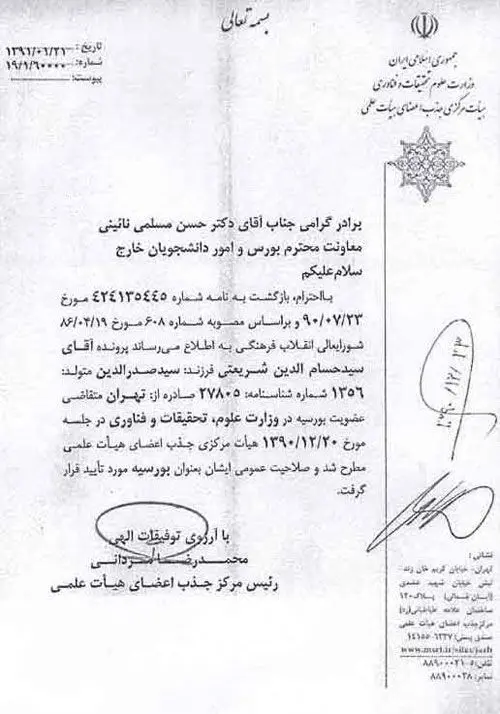 بسمه تعالی
جمهوری اسلامی ایران
وزارت علوم تحقیقات و فناوری
هیأت مرکزی جذب اعضای هیأت علمی
تاریخ: ۱۳۹۱/۰۱/۲۱
شماره: ۱۹/۱/۶۰۰۰۰
پیوست:
برادر گرامی جناب آقای دکتر حسن مسلمی نائینی
معاونت محترم بورس و امور دانشجویان خارج
سلام‌علیکم
بااحترام، بازگشت به نامه شماره ۴۲۴۱۳۵۴۴۵ مورخ
۹۰/۰۷/۲۳ و براساس مصوبه شماره ۶۰۸ مورخ ۸۶/۰۴/۱۹
شورایعالی انقلاب فرهنگی به اطلاع می‌رساند پرونده آقای
سیدحسام الدین شریعتی فرزند: سیدصدرالدین متولد:
۱۳۵۶ شماره شناسنامه: ۲۷۸۰۵ صادره از: تهران متقاضی
عضویت بورسیه در وزارت علوم، تحقیقات و فناوری در جلسه
مورخ ۱۳۹۰/۱۲/۲۰ هیأت مرکزی جذب اعضای هیأت علمی
مطرح شد و صلاحیت عمومی ایشان بعنوان بورسیه مورد تأیید قرار
گرفت.
با آرزوی توفیقات الهی
محمدرضا مردانی
رئیس مرکز جذب اعضای هیأت علمی
نشانی:
تهران- خیابان کریم خان زند-
نبش خیابان شهید عضدی
(آبان شمالی) پلاک ۱۲۰
ساختمان علامه طباطبائی(ره)
مرکز جذب اعضای هیأت علمی
صندوق پستی: ۱۴۱۵۵-۶۳۳۷
تلفن: ۸۸۹۰۰۰۲۱-۵
نمابر: ۸۸۹۰۰۰۲۸